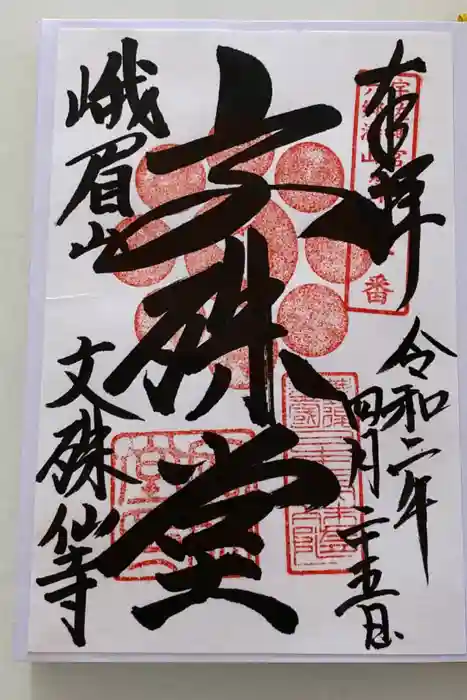 奉拝
令和二年
四月二十五日
文殊堂
峨眉山
文殊仙寺
番